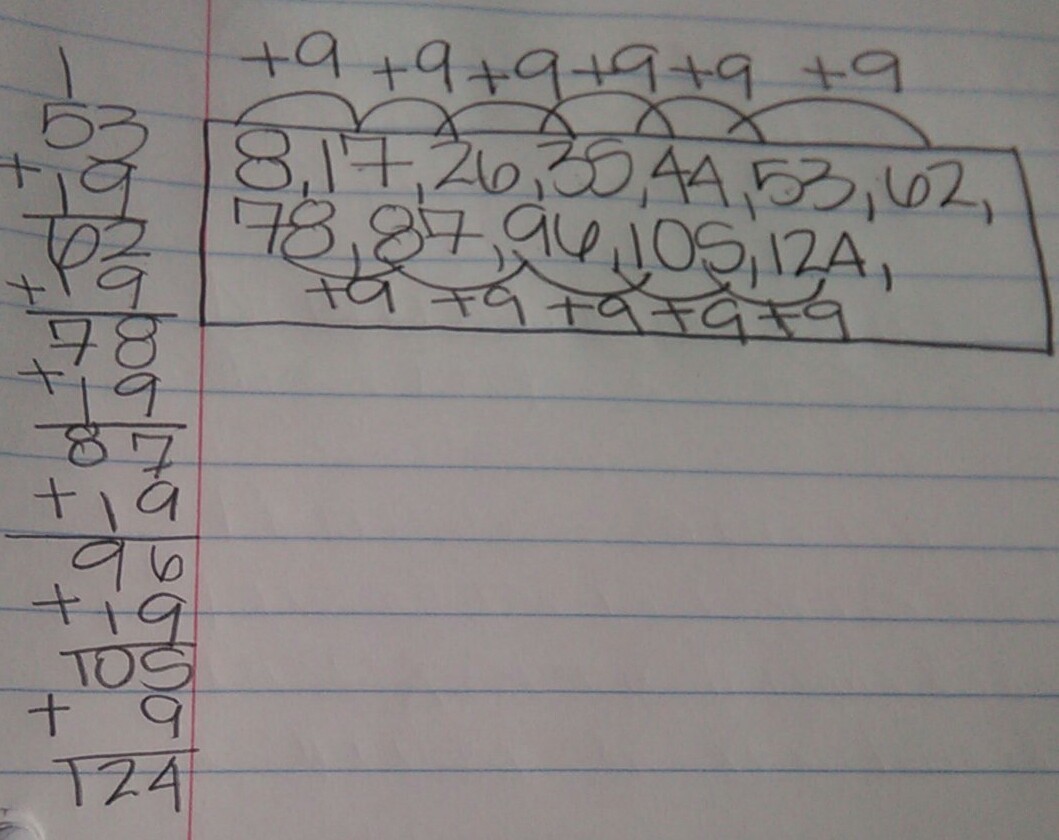 1
53
+19
62
+19
78
+19
87
+19
96
+19
105
+ 9
124
+9 +9 +9 +9 +9 +9
8,17,26,35,44,53,62,
78,87,96,105,124,
+9 +9 +9 +9 +9